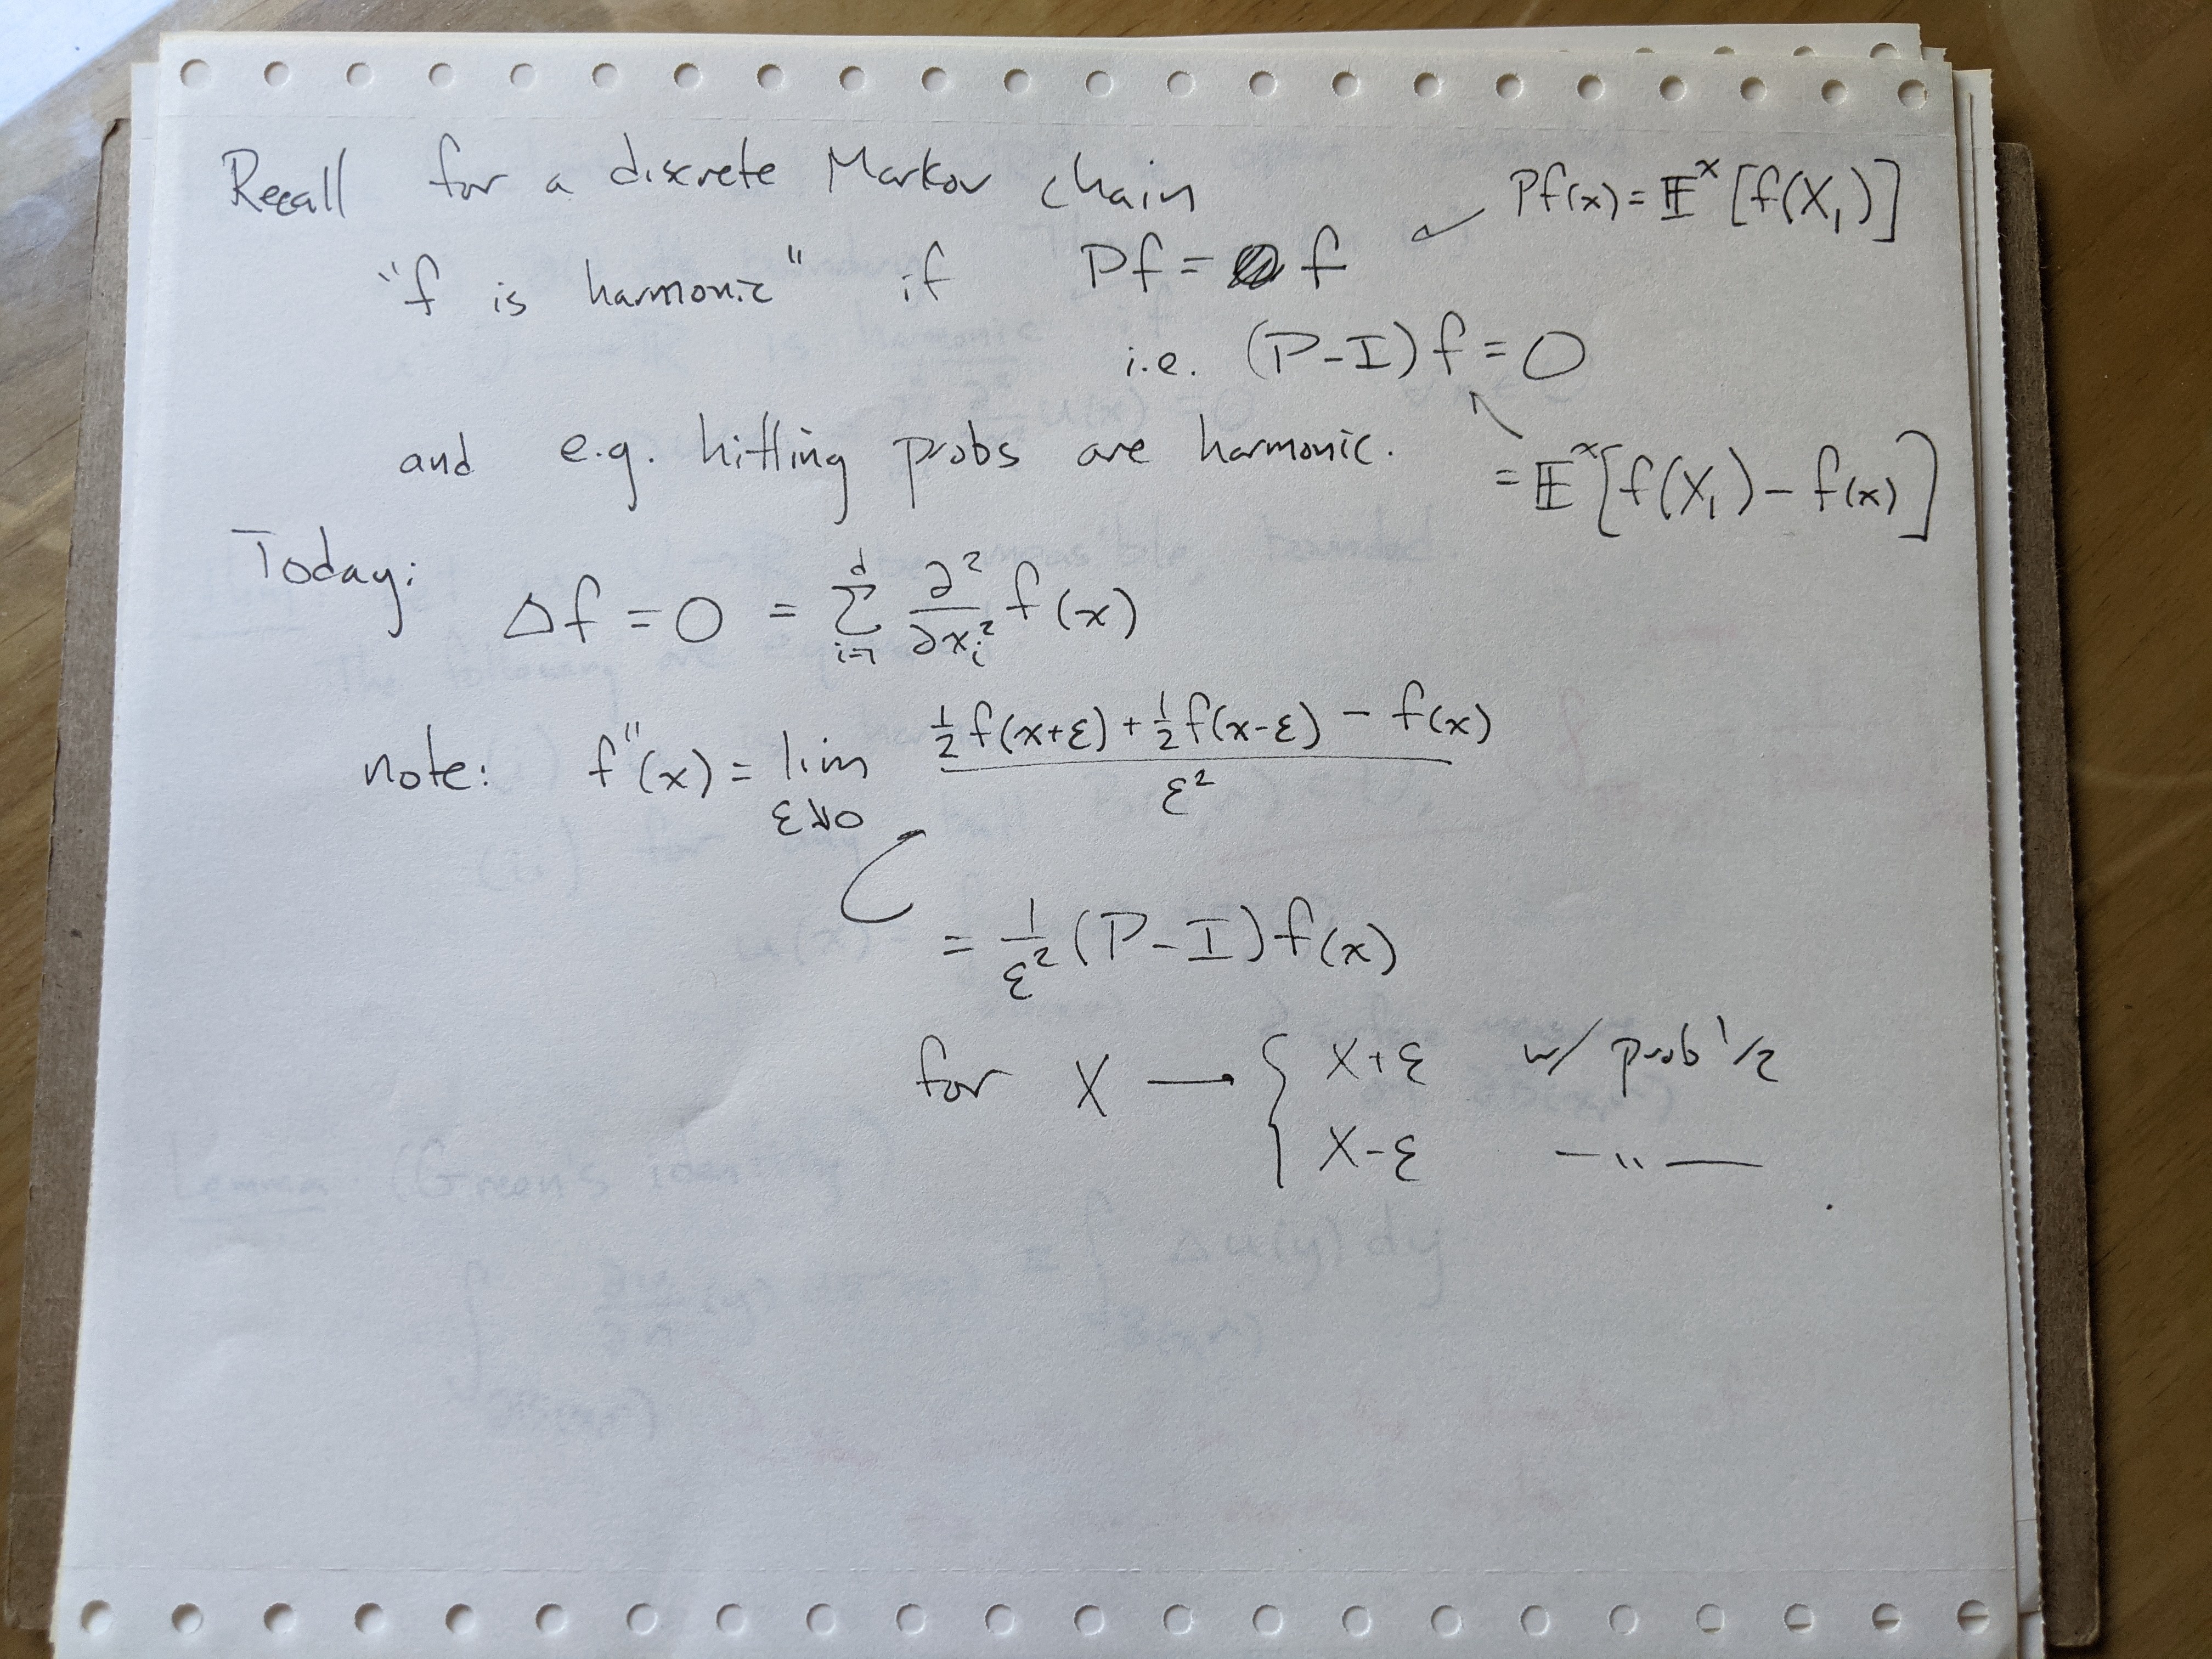 Recall for a discrete Markov chain
Pf(x) = 𝔼ˣ[f(X₁)]
"f is harmonic" if Pf = f
i.e. (P-I)f = 0
and e.g. hitting probs are harmonic.
= 𝔼ˣ[f(X₁) - f(x)]
Today:
Δf = 0 = Σ_{i=1}^{d} ∂²/∂x_i² f(x)
note: f''(x) = lim_{ε↓0} (½f(x+ε) + ½f(x-ε) - f(x)) / ε²
= 1/ε² (P-I)f(x)
for X → { X+ε w/ prob 1/2
X-ε —"—